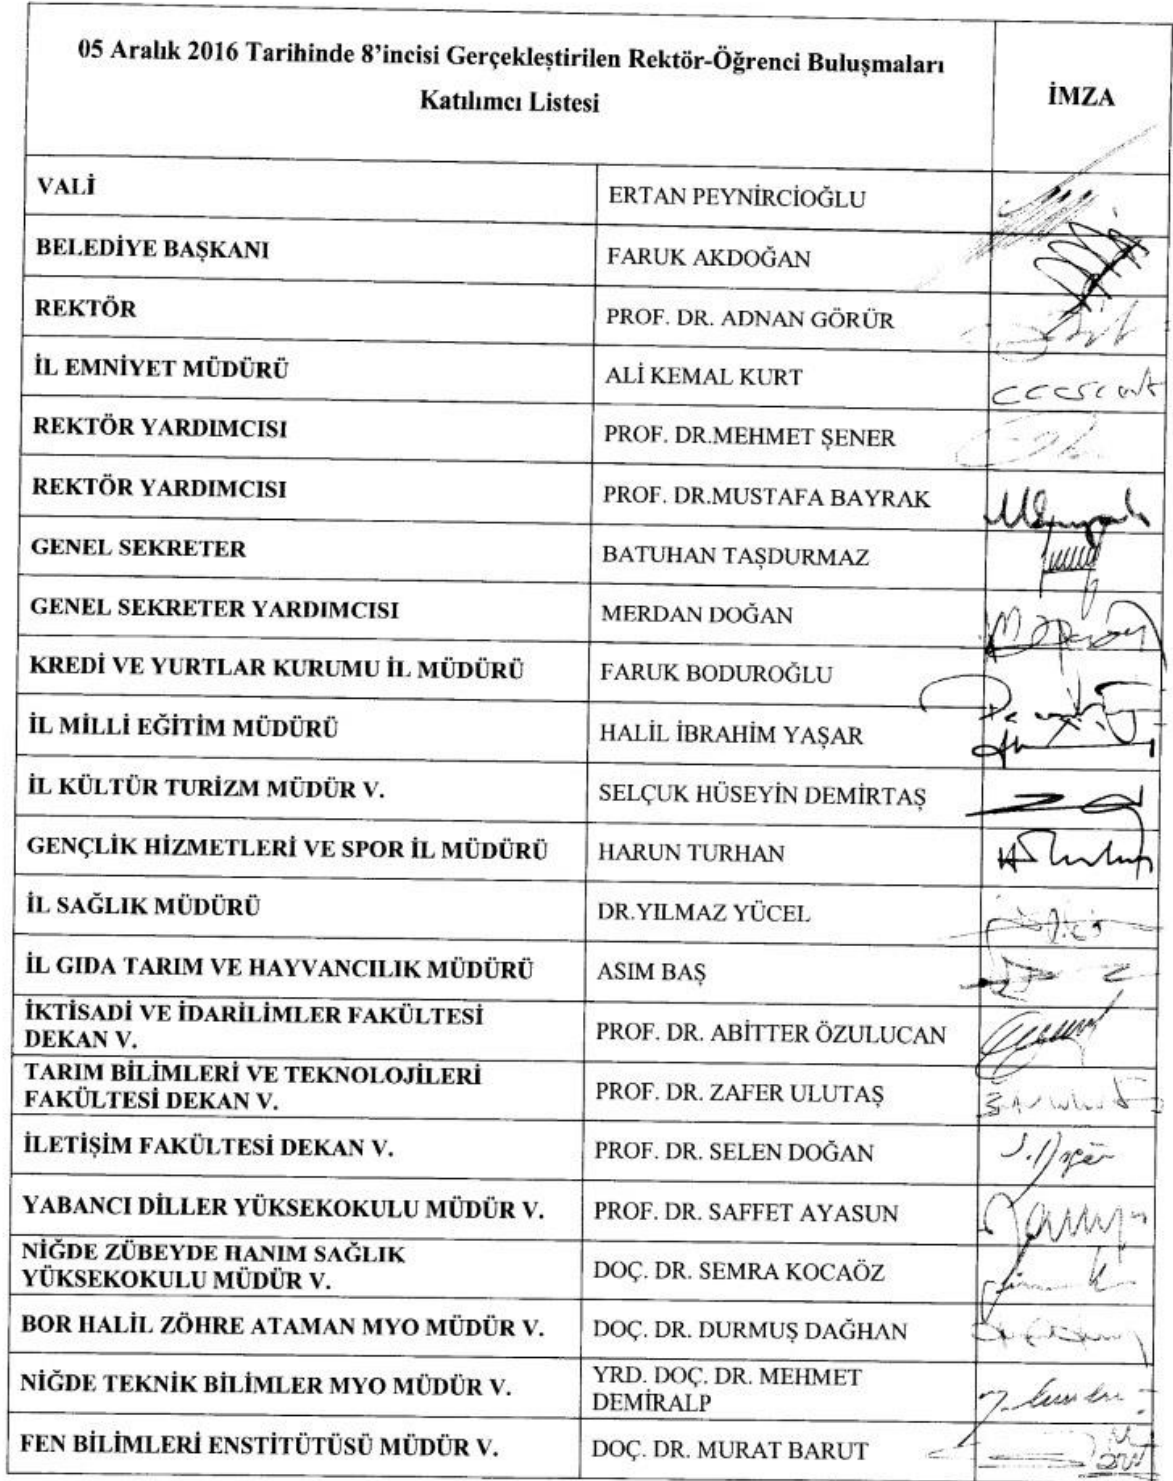 05 Aralık 2016 Tarihinde 8’incisi Gerçekleştirilen Rektör-Öğrenci Buluşmaları
Katılımcı Listesi
İMZA
VALİ ERTAN PEYNİRCİOĞLU
BELEDİYE BAŞKANI FARUK AKDOĞAN
REKTÖR PROF. DR. ADNAN GÖRÜR
İL EMNİYET MÜDÜRÜ ALİ KEMAL KURT
REKTÖR YARDIMCISI PROF. DR.MEHMET ŞENER
REKTÖR YARDIMCISI PROF. DR.MUSTAFA BAYRAK
GENEL SEKRETER BATUHAN TAŞDURMAZ
GENEL SEKRETER YARDIMCISI MERDAN DOĞAN
KREDİ VE YURTLAR KURUMU İL MÜDÜRÜ FARUK BODUROĞLU
İL MİLLİ EĞİTİM MÜDÜRÜ HALİL İBRAHİM YAŞAR
İL KÜLTÜR TURİZM MÜDÜR V. SELÇUK HÜSEYİN DEMİRTAŞ
GENÇLİK HİZMETLERİ VE SPOR İL MÜDÜRÜ HARUN TURHAN
İL SAĞLIK MÜDÜRÜ DR.YILMAZ YÜCEL
İL GIDA TARIM VE HAYVANCILIK MÜDÜRÜ ASIM BAŞ
İKTİSADİ VE İDARİLİMLER FAKÜLTESİ
DEKAN V.
PROF. DR. ABİTTER ÖZULUCAN
TARIM BİLİMLERİ VE TEKNOLOJİLERİ
FAKÜLTESİ DEKAN V.
PROF. DR. ZAFER ULUTAŞ
İLETİŞİM FAKÜLTESİ DEKAN V. PROF. DR. SELEN DOĞAN
YABANCI DİLLER YÜKSEKOKULU MÜDÜR V. PROF. DR. SAFFET AYASUN
NİĞDE ZÜBEYDE HANIM SAĞLIK
YÜKSEKOKULU MÜDÜR V.
DOÇ. DR. SEMRA KOCAÖZ
BOR HALİL ZÖHRE ATAMAN MYO MÜDÜR V. DOÇ. DR. DURMUŞ DAĞHAN
NİĞDE TEKNİK BİLİMLER MYO MÜDÜR V.
YRD. DOÇ. DR. MEHMET
DEMİRALP
FEN BİLİMLERİ ENSTİTÜTÜSÜ MÜDÜR V. DOÇ. DR. MURAT BARUT